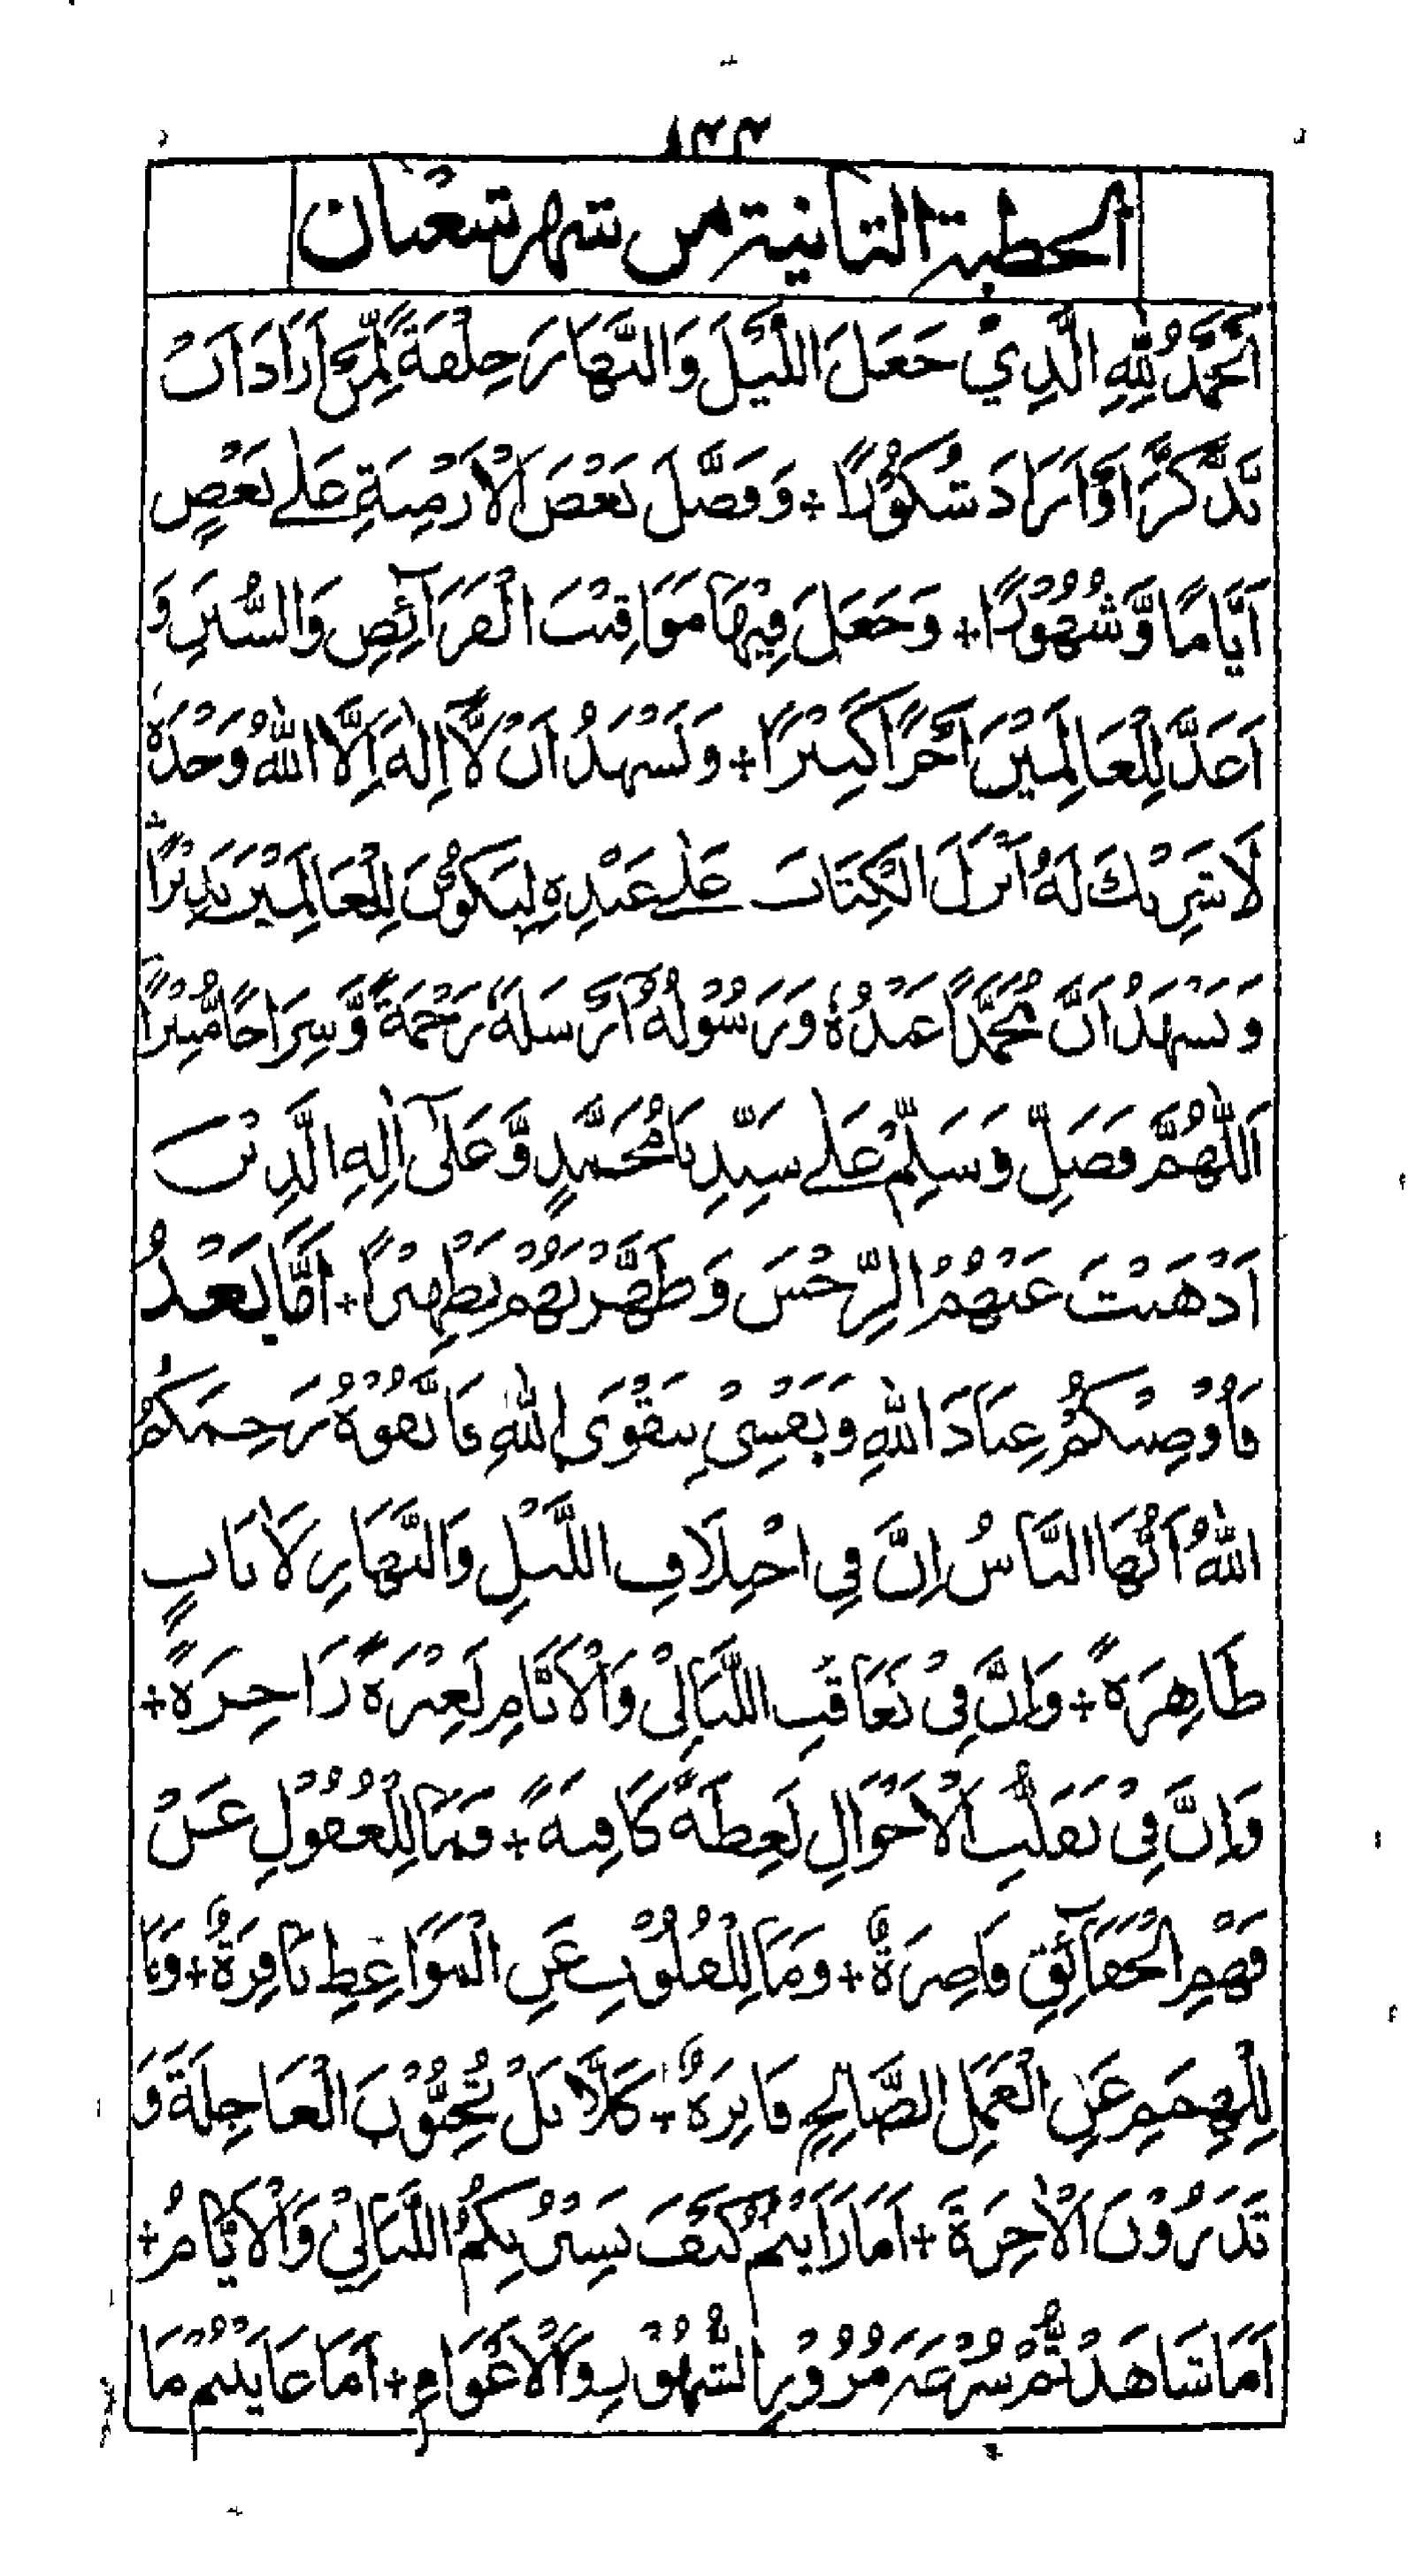 ١٢٢
الخطبة الثانية من شهر شعبان
اَلْحَمْدُ لِلّٰهِ الَّذِيْ جَعَلَ اللَّيْلَ وَالنَّهَارَ خِلْفَةً لِّمَنْ اَرَادَ اَنْ
يَّذَّكَّرَ اَوْ اَرَادَ شُكُوْرًا + وَفَضَّلَ بَعْضَ الْاَزْمِنَةِ عَلٰے بَعْضٍ
اَيَّامًا وَّشُهُوْرًا + وَجَعَلَ فِيْهَا مَوَاقِيْتَ الْفَرَآئِضِ وَالسُّنَنِ وَ
اَعَدَّ لِلْعَامِلِيْنَ اَجْرًا كَبِيْرًا + وَنَشْهَدُ اَنْ لَّآ اِلٰهَ اِلَّا اللّٰهُ وَحْدَهٗ
لَا شَرِيْكَ لَهٗ اَنْزَلَ الْكِتَابَ عَلٰے عَبْدِهٖ لِيَكُوْنَ لِلْعَالَمِيْنَ نَذِيْرًا
وَنَشْهَدُ اَنَّ مُحَمَّدًا عَبْدُهٗ وَرَسُوْلُهٗ اَرْسَلَهٗ رَحْمَةً وَّسِرَاجًا مُّنِيْرًا
اَللّٰهُمَّ فَصَلِّ وَسَلِّمْ عَلٰے سَيِّدِنَا مُحَمَّدٍ وَّعَلٰٓى اٰلِهِ الَّذِيْنَ
اَذْهَبْتَ عَنْهُمُ الرِّجْسَ وَطَهَّرْتَهُمْ تَطْهِيْرًا + اَمَّا بَعْدُ
فَاُوْصِيْكُمْ عِبَادَ اللّٰهِ وَنَفْسِيْ بِتَقْوَى اللّٰهِ فَاتَّقُوْهُ رَحِمَكُمُ
اللّٰهُ اَيُّهَا النَّاسُ اِنَّ فِي اخْتِلَافِ اللَّيْلِ وَالنَّهَارِ لَاٰيَاتٍ
ظَاهِرَةً + وَاِنَّ فِيْ تَعَاقُبِ اللَّيَالِيْ وَالْاَيَّامِ لَعِبْرَةً زَاجِرَةً +
وَاِنَّ فِيْ تَقَلُّبِ الْاَحْوَالِ لَعِظَةً كَافِيَةً + فَمَا لِلْعُقُوْلِ عَنْ
فَهْمِ الْحَقَآئِقِ قَاصِرَةً + وَمَا لِلْقُلُوْبِ عَنِ الْمَوَاعِظِ نَافِرَةً + وَمَا
لِلْهِمَمِ عَنِ الْعَمَلِ الصَّالِحِ فَاتِرَةً + كَلَّا بَلْ تُحِبُّوْنَ الْعَاجِلَةَ وَ
تَذَرُوْنَ الْاٰخِرَةَ + اَمَا رَاَيْتُمْ كَيْفَ تَسِيْرُ بِكُمُ اللَّيَالِيْ وَالْاَيَّامُ +
اَمَا شَاهَدْتُّمْ سُرْعَةَ مُرُوْرِ الشُّهُوْرِ وَالْاَعْوَامِ + اَمَا عَايَنْتُمْ مَا